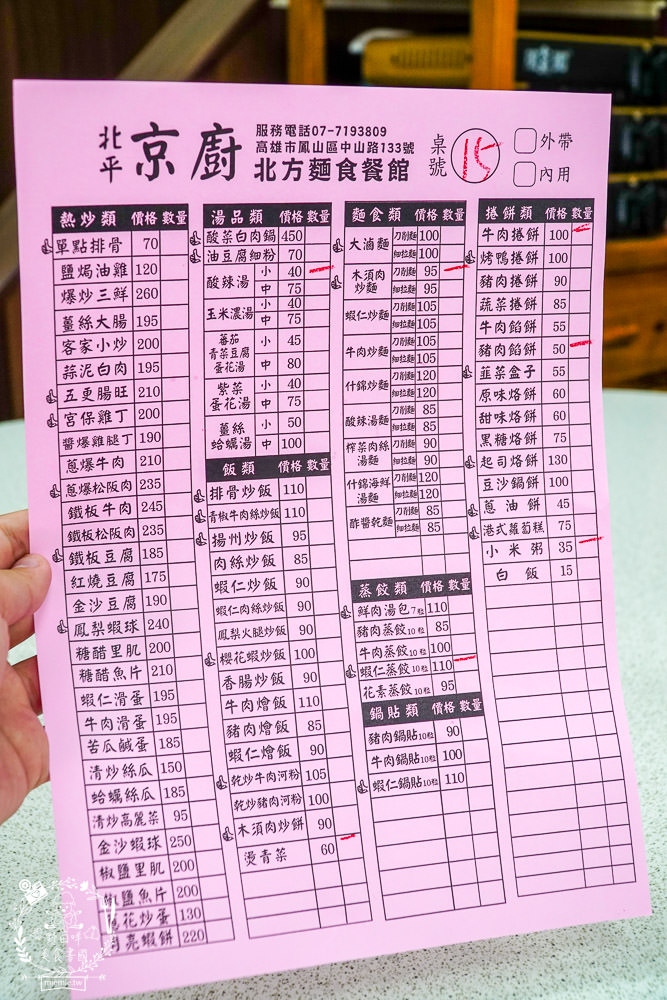 北平
京廚
服務電話07-7193809
高雄市鳳山區中山路133號
北方麵食餐館
桌號
15
外帶
內用
熱炒類 價格 數量
單點排骨 70
鹽焗油雞 120
爆炒三鮮 260
薑絲大腸 195
客家小炒 200
蒜泥白肉 195
五更腸旺 210
宮保雞丁 200
醬爆雞腿丁 190
蔥爆牛肉 210
蔥爆松阪肉 235
鐵板牛肉 245
鐵板松阪肉 235
鐵板豆腐 185
紅燒豆腐 175
金沙豆腐 190
鳳梨蝦球 240
糖醋里肌 200
糖醋魚片 210
蝦仁滑蛋 195
牛肉滑蛋 195
苦瓜鹹蛋 185
清炒絲瓜 150
蛤蠣絲瓜 185
清炒高麗菜 95
金沙蝦球 250
椒鹽里肌 200
椒鹽魚片 200
花炒蛋 130
亮蝦餅 220
湯品類 價格 數量
酸菜白肉鍋 450
油豆腐細粉 70
酸辣湯 小 40
中 75
玉米濃湯 小 40
中 75
蕃茄青菜豆腐蛋花湯 小 45
中 80
紫菜蛋花湯 小 40
中 75
薑絲蛤蠣湯 小 50
中 100
飯類 價格 數量
排骨炒飯 110
青椒牛肉絲炒飯 110
揚州炒飯 95
肉絲炒飯 85
蝦仁炒飯 90
蝦仁肉絲炒飯 90
鳳梨火腿炒飯 90
櫻花蝦炒飯 100
香腸炒飯 90
牛肉燴飯 110
豬肉燴飯 85
蝦仁燴飯 90
乾炒牛肉河粉 105
乾炒豬肉河粉 100
木須肉炒餅 90
燙青菜 60
麵食類 價格 數量
大滷麵 刀削麵 100
細拉麵 100
木須肉炒麵 刀削麵 95
細拉麵 95
蝦仁炒麵 刀削麵 105
細拉麵 105
牛肉炒麵 刀削麵 105
細拉麵 105
什錦炒麵 刀削麵 120
細拉麵 120
酸辣湯麵 刀削麵 85
細拉麵 85
榨菜肉絲湯麵 刀削麵 90
細拉麵 90
什錦海鮮湯麵 刀削麵 120
細拉麵 120
酢醬乾麵 刀削麵 85
細拉麵 85
蒸餃類 價格 數量
鮮肉湯包7粒 110
豬肉蒸餃10粒 85
牛肉蒸餃10粒 100
蝦仁蒸餃10粒 110
花素蒸餃10粒 95
鍋貼類 價格 數量
豬肉鍋貼10粒 90
牛肉鍋貼10粒 100
蝦仁鍋貼10粒 110
捲餅類 價格 數量
牛肉捲餅 100
烤鴨捲餅 100
豬肉捲餅 90
蔬菜捲餅 85
牛肉餡餅 55
豬肉餡餅 50
韮菜盒子 55
原味烙餅 60
甜味烙餅 60
黑糖烙餅 75
起司烙餅 130
豆沙鍋餅 100
蔥油餅 45
港式蘿蔔糕 75
小米粥 35
白飯 15
mienie.tw